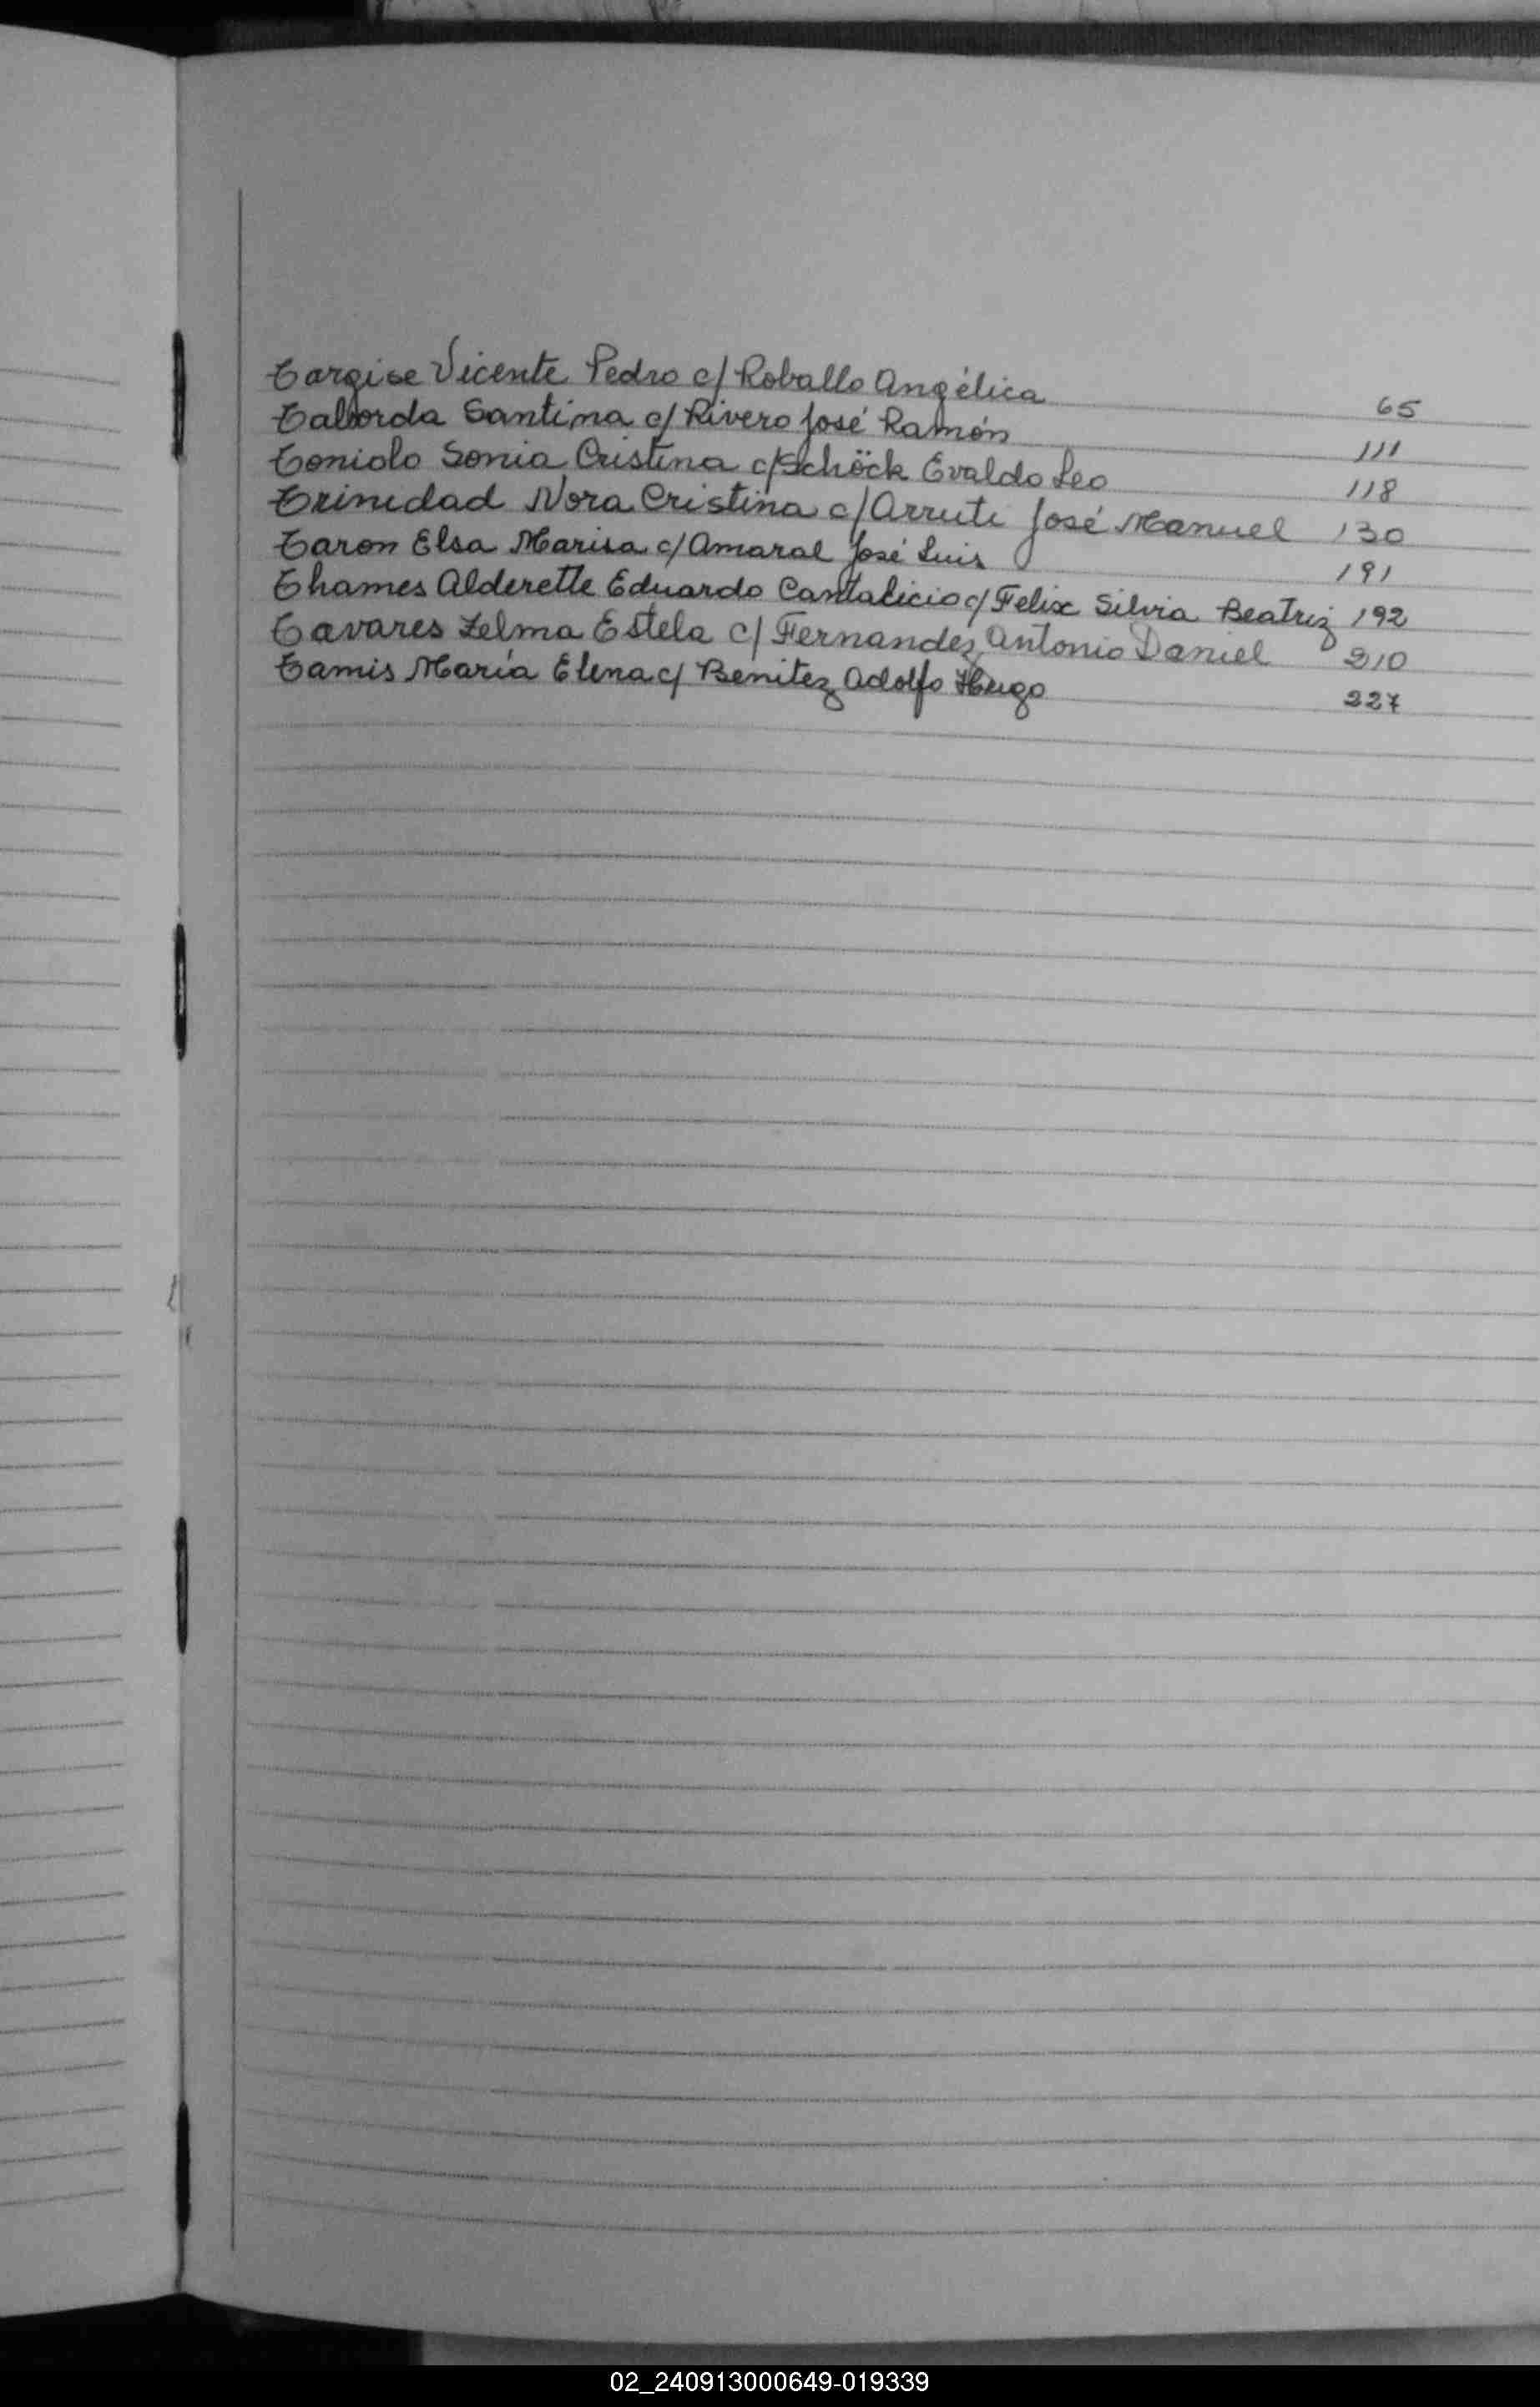 Targise Vicente Pedro c/ Roballo Angélica 65
Taborda Santina c/ Rivero José Ramón 111
Toniolo Sonia Cristina c/ Schöck Evaldo Leo 118
Trinidad Nora Cristina c/ Arruti José Manuel 130
Taron Elsa Marisa c/ Amaral José Luis 191
Thames Alderette Eduardo Cantalicio c/ Felix Silvia Beatriz 192
Tavares Zelma Estela c/ Fernandez Antonio Daniel 210
Tamis María Elena c/ Benitez Adolfo Hugo 227
02_240913000649-019339